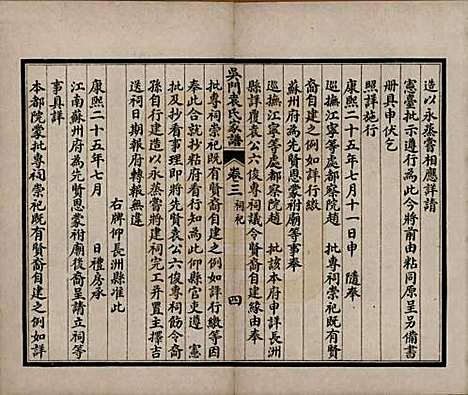 造以永蒸嘗相應詳請
憲臺批示遵行爲此今將前由粘同原呈另備書
册具申伏乞
照詳施行
康熙二十五年七月十一日申　隨奉
巡撫江寧等處都察院趙　批專祠崇祀既有賢
裔自建之例如詳行繳等因又奉
蘇州府爲先賢恩蒙祔廟等事奉
巡撫江寧等處都察院趙　批該本府申詳長洲
縣詳覆袁公六俊專祠議令賢裔自建緣由奉
吳門袁氏家譜　卷三　祠祀　四
批專祠崇祀既有賢裔自建之例如詳行繳等因
奉此合就抄看行知爲此仰縣官吏遵　憲
批及抄看事理即將先賢袁公六俊專祠飭令裔
孫自行建造以永蒸嘗將建祠完工并置主擇吉
送祠日期報府轉報無違
右牌仰長洲縣准此
康熙二十五年七月　日禮房承
江南蘇州府爲先賢恩蒙祔廟後裔呈請立祠等
事具詳
本部院蒙批專祠崇祀既有賢裔自建之例如詳